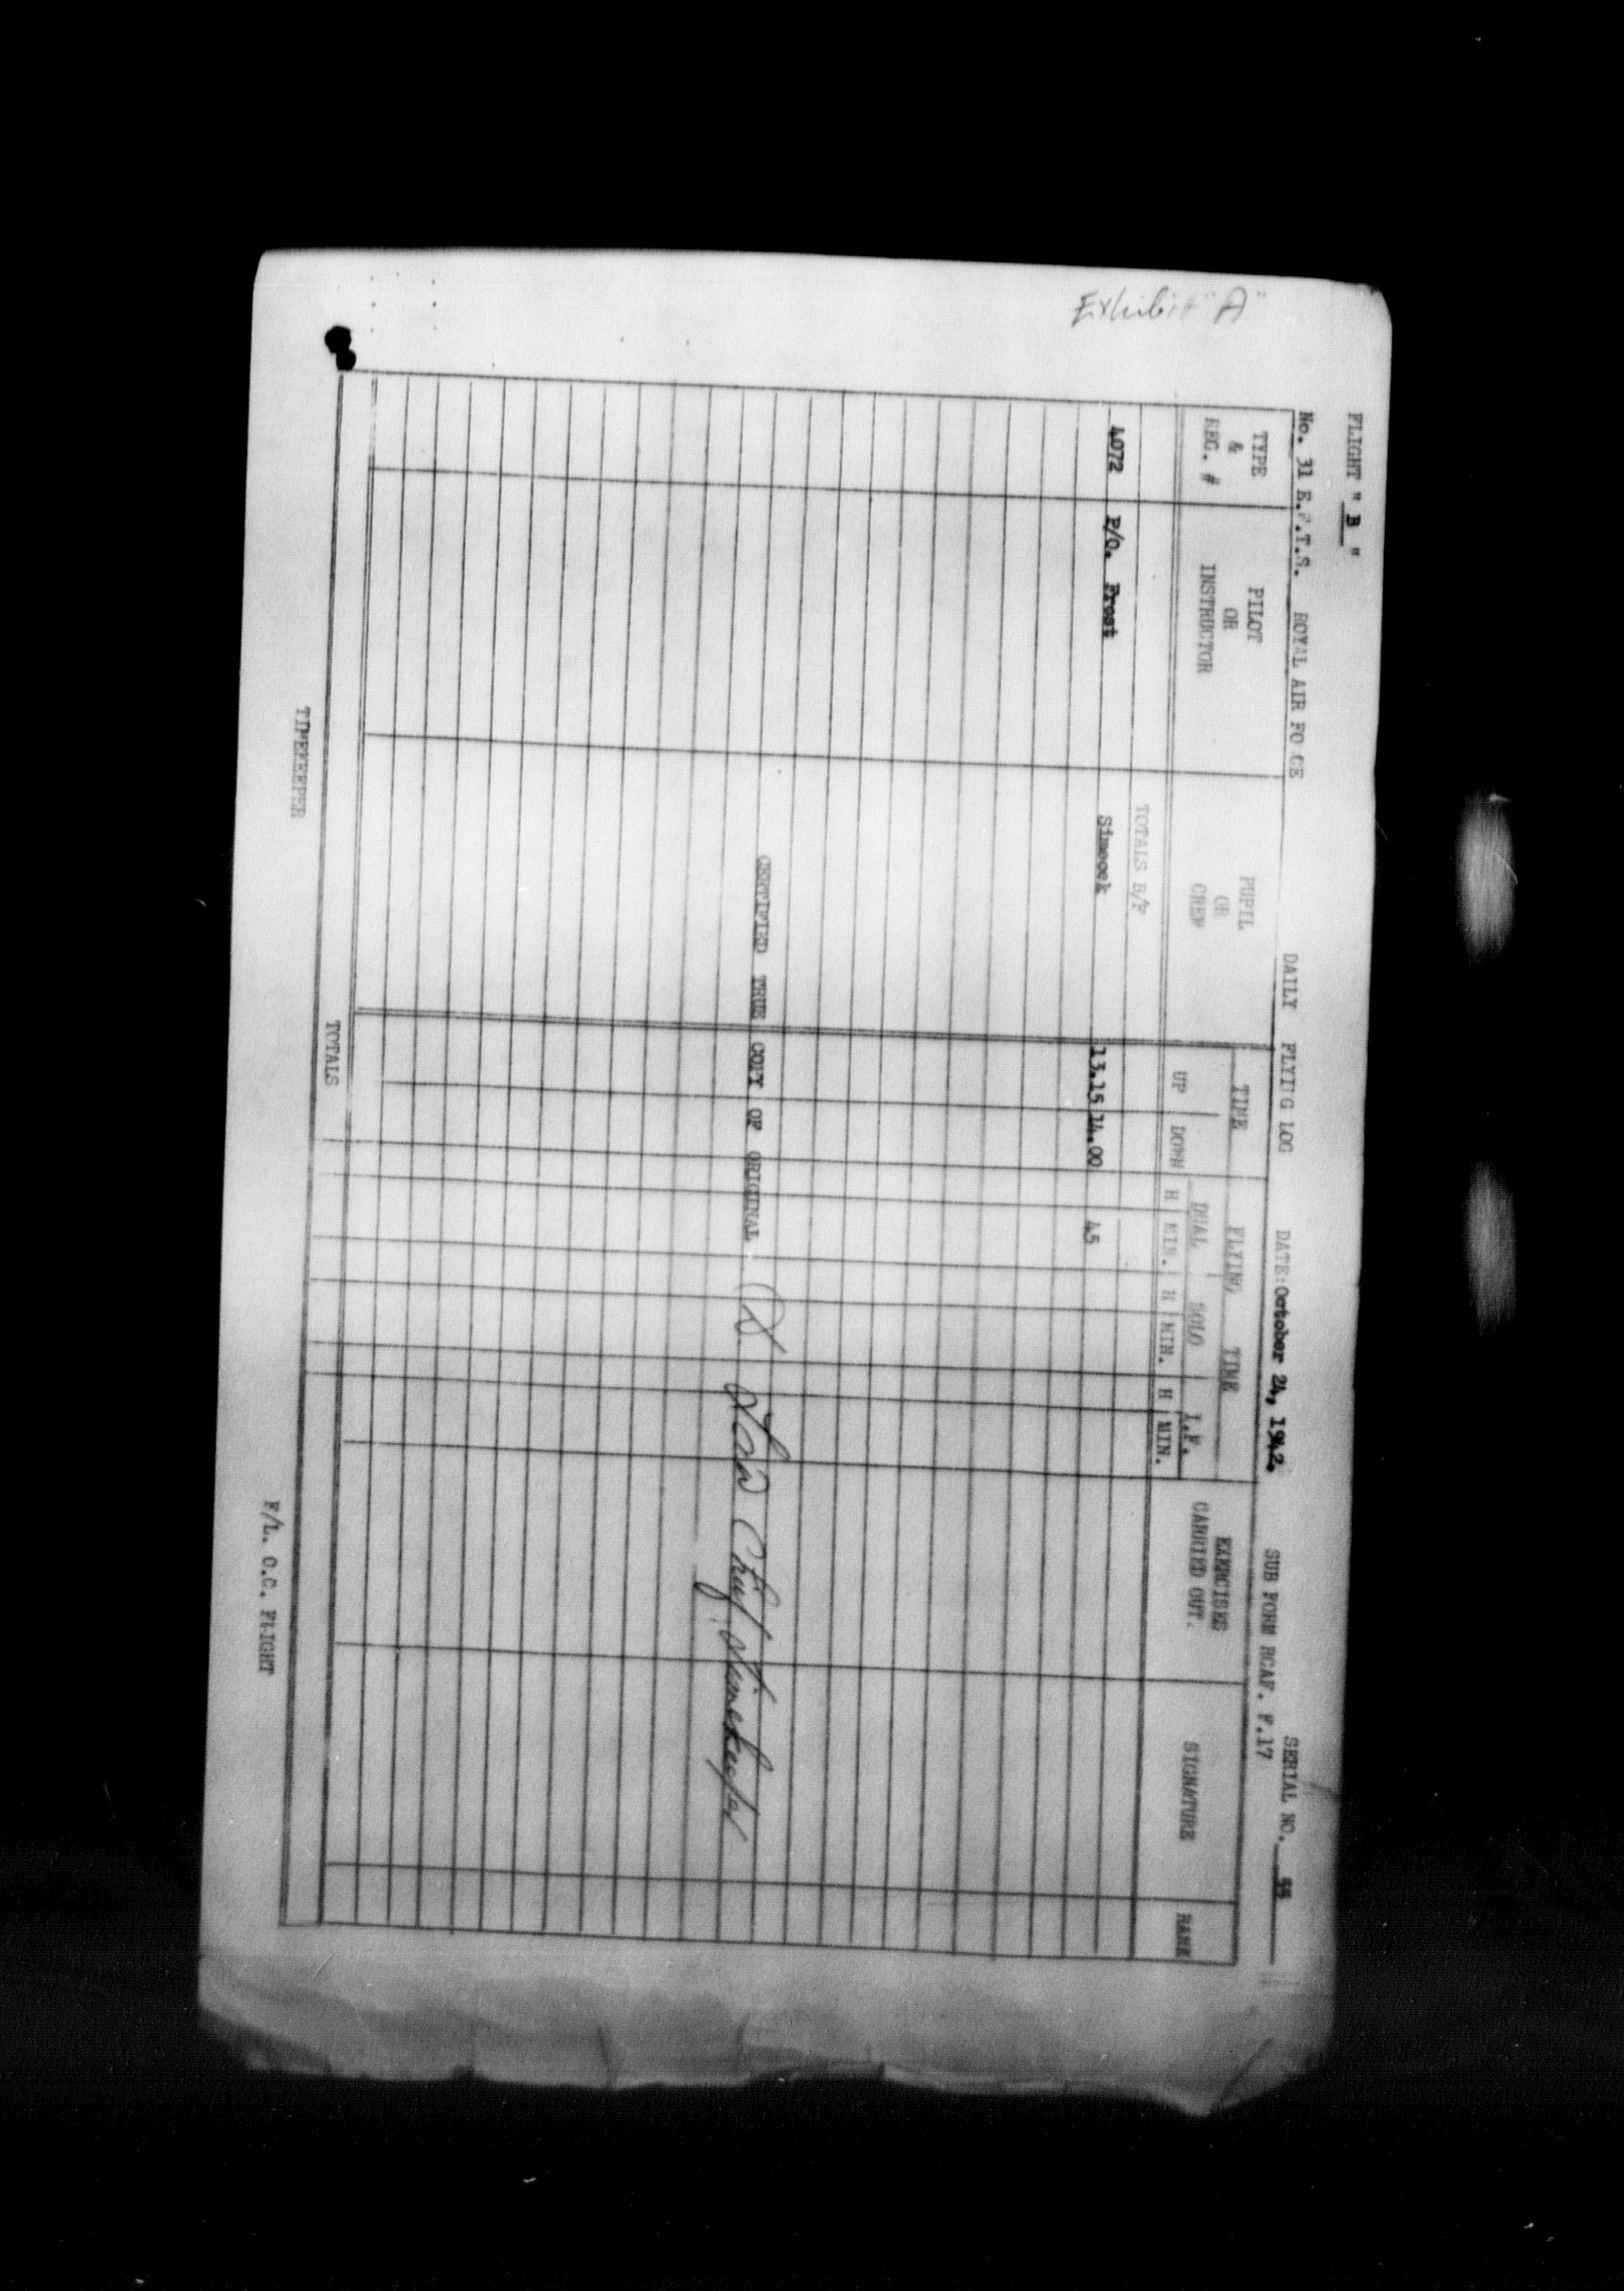 Exhibit "A"
FLIGHT " B "
SERIAL NO. 55
No. 31 E.F.T.S. ROYAL AIR FO CE DAILY FLYING LOG DATE: October 24, 1942. SUB FORM RCAF. F.17
TYPE & REG. # PILOT OR INSTRUCTOR PUPIL OR CREW TIME FLYING TIME EXERCISES CARRIED OUT. SIGNATURE RANK
DUAL SOLO I.F.
UP DOWN H MIN. H MIN. H MIN.
TOTALS B/F
4072 P/O. Frost Simcock 13.15 14.00 45
CERTIFIED TRUE COPY OF ORIGINAL Chief Timekeeper
TOTALS
TIMEKEEPER F/L. O.C. FLIGHT